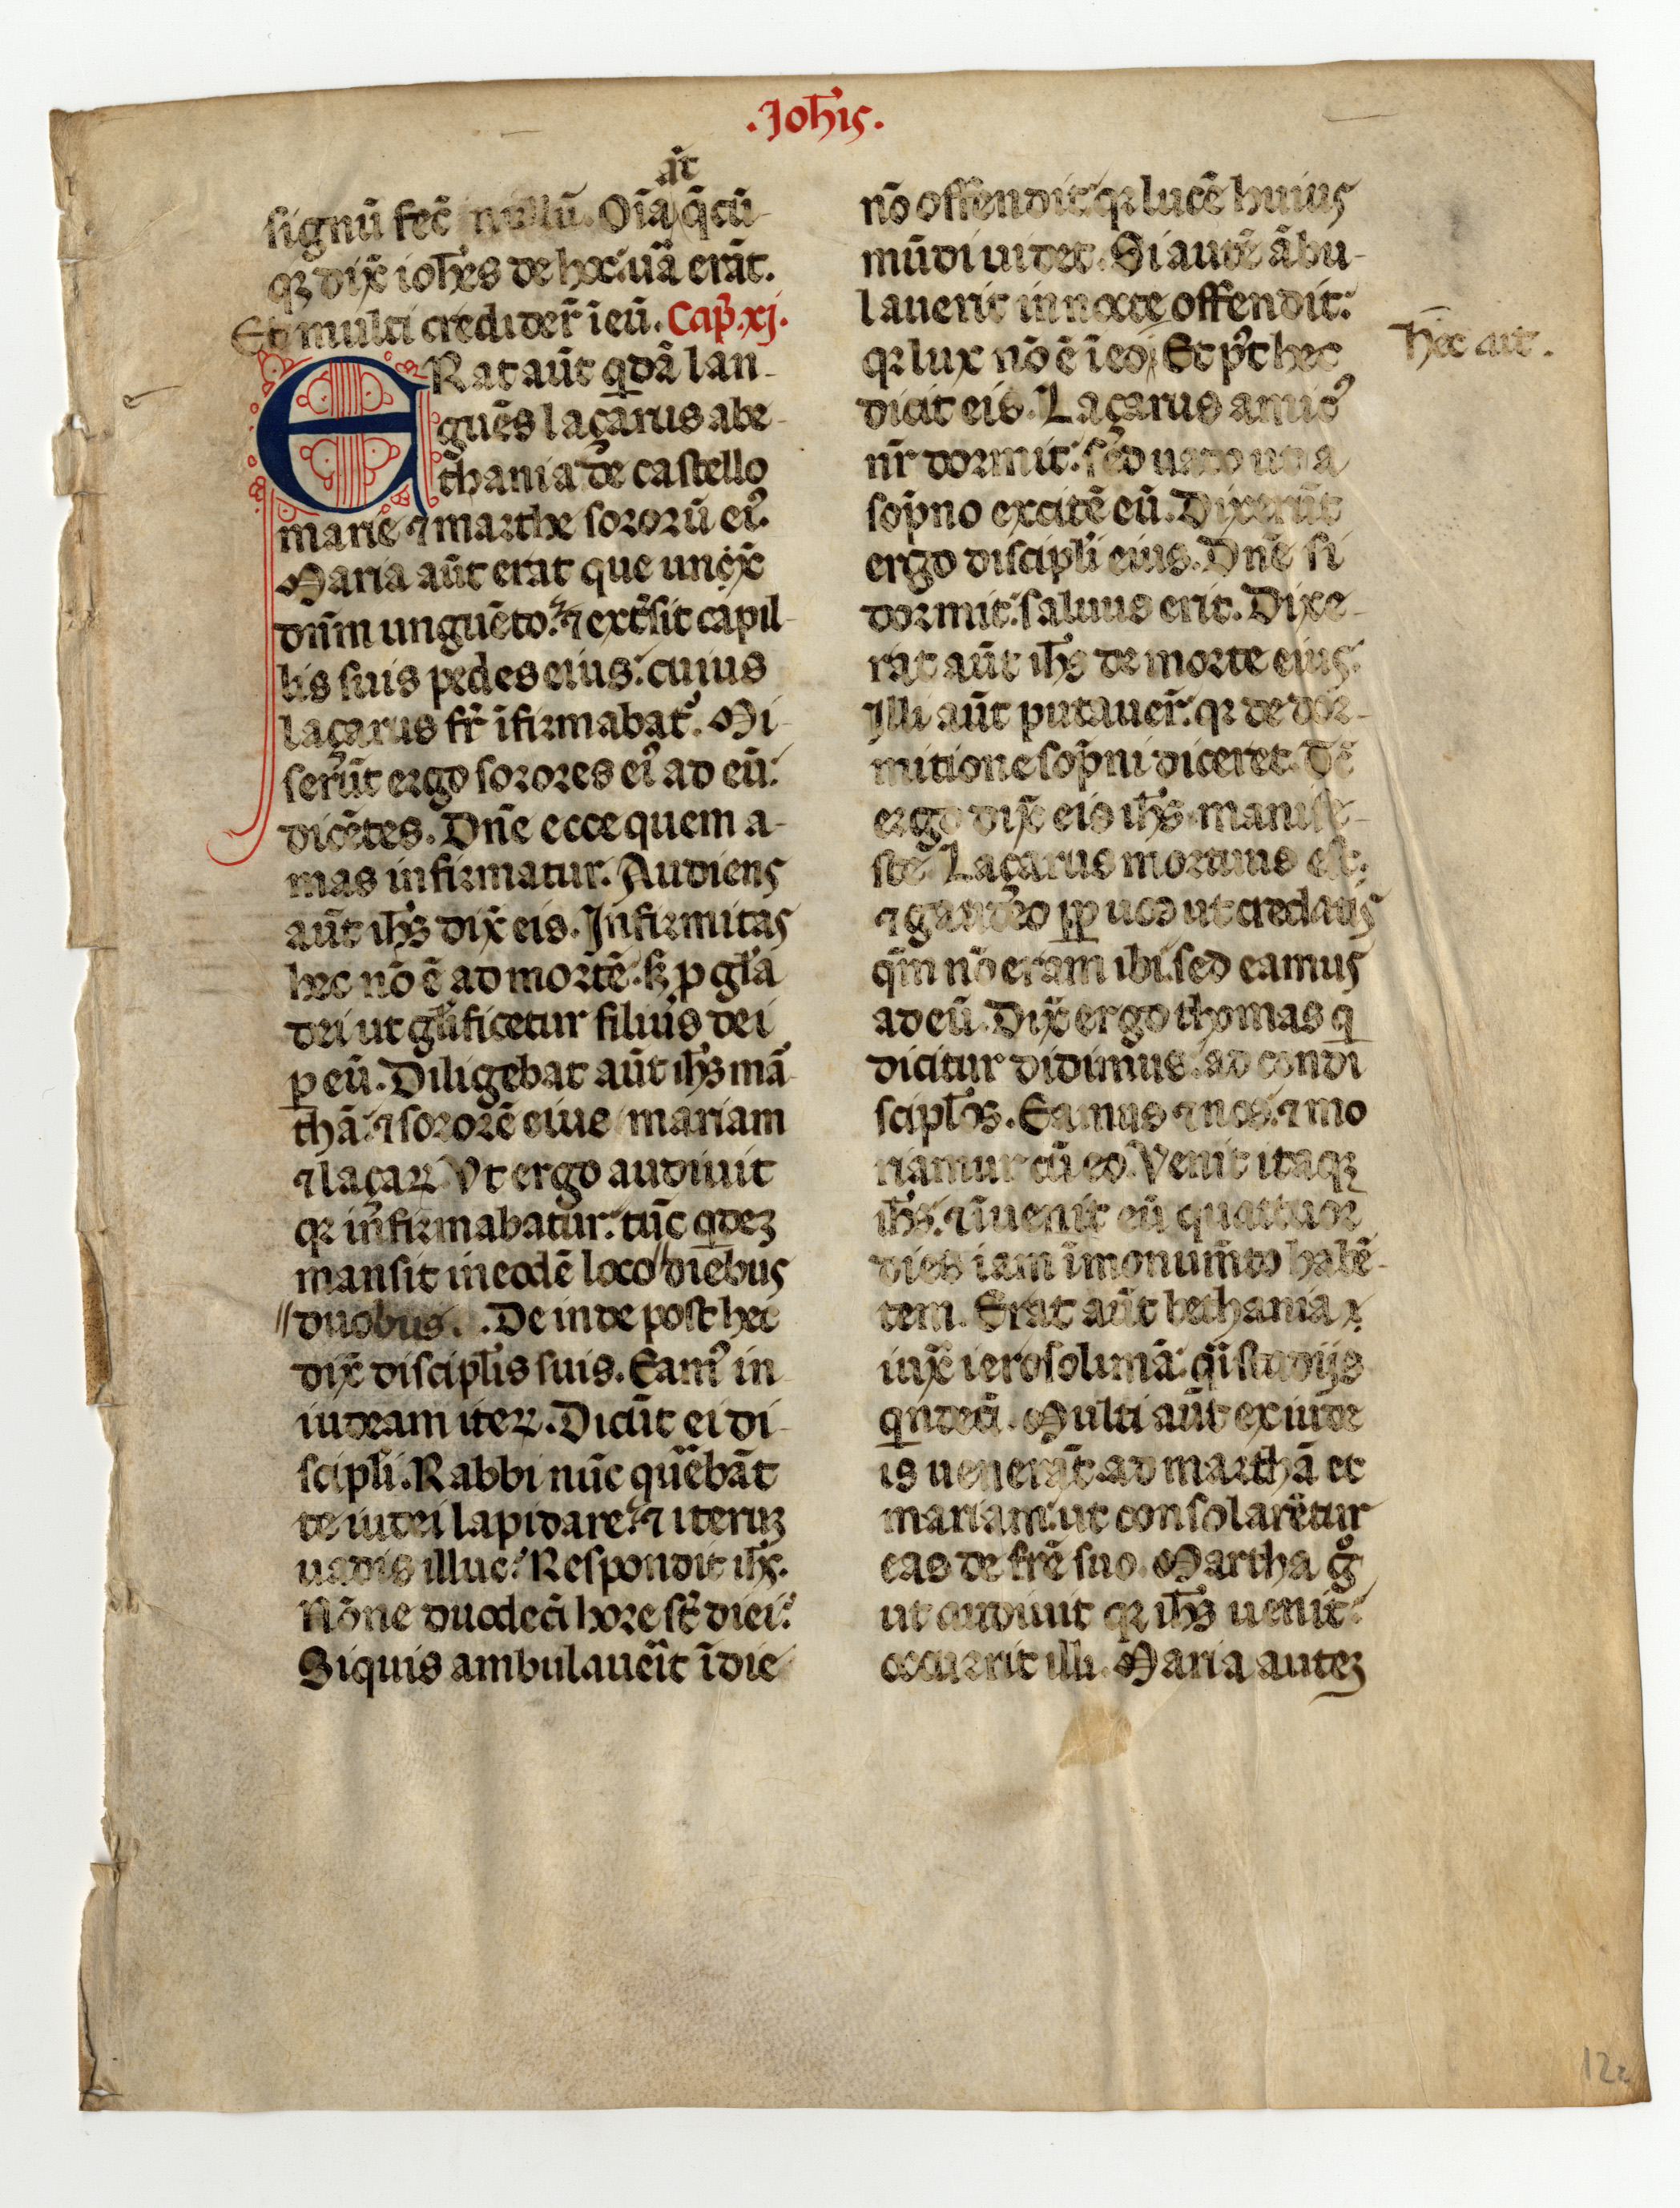 .Joh̄is.
aūt
signū fec̄ nullū. Oīa q̄cū-
qȝ dix̄ ioh̄es de hoc: ūa erāt.
Et multi credider̄ ī eū. Cap̄. xj.
ERat aūt q̄dā lan-
guēs laçarus a be-
thania de castello
marie ⁊ marthe sororū eiꝰ.
Maria aūt erat que unc̄x̄
dn̄m unguēto: ⁊ ext̄sit capil-
lis suis pedes eius: cuius
laçarus fr̄ īfirmabat᷑. Mi-
serūt ergo sorores eiꝰ ad eū:
dicētes. Dn̄e ecce quem a-
mas infirmatur. Audiens
aūt ih̄s dix̄ eis. Infirmitas
hec nō ē ad mortē: sꝫ p gl̄a
dei ut gl̄ificetur filius dei
ꝑ eū. Diligebat aūt ih̄s mā-
thā: ⁊ sororē eius mariam
⁊ laçaꝝ Vt ergo audiuit
qꝛ infirmabatur: tūc qͥdeȝ
mansit in eodē loco // diebus
// duobus. . Deinde post hec
dix̄ discipl̄is suis. Eamꝰ in
iudeam iteꝝ. Dicūt ei di-
scipl̄i. Rabbi nūc quēbāt
te iudei lapidare: ⁊ iteruȝ
uadis illuc: Respondit ih̄s.
Nōne duodecī hore st̄ diei:
Siquis ambulaūit ī die
nō offendit: qꝛ lucē huius
mūdi uidet. Si autē ābu-
lauerit in nocte offendit:
qꝛ lux nō ē ī eo Et pꝰt hec
Hēc ait.
dicit eis. Laçarus amicꝰ
nr̄ dormit: sed uado ut a
sop̄no excitē eū. Dixerūt
ergo discipl̄i eius. Dn̄e si
dormit: saluus erit. Dixe-
rat aūt ih̄s de morte eius:
Illi aūt putauer̄: qꝛ de dor-
mitione sop̄ni diceret. Tē
ergo dix̄ eis ih̄s manife-
ste Laçarus mortuus est:
⁊ gaudeo ꝓp uos ut credatis
qm̄ nō eram ibi. sed eamus
ad eū. Dix̄ ergo thomas qͥ
dicitur didimus: ad condi
scipl̄os. Eamus ⁊ nos: ⁊ mo
riamur cū eo. Venit itaqȝ
ih̄s: ⁊ īuenit eū quattuor
dies iam ī monum̄to habē-
tem. Erat aūt bethania
iux̄ ierosolimā: q̄i stadijs
qͥndecī. Multi aūt ex iude
is uenerāt ad marthā et
mariam: ut consolarētur
eas de fr̄e suo. Martha gͦ
ut audiuit qꝛ ih̄s uenit:
occurrit illi. Maria auteȝ
122